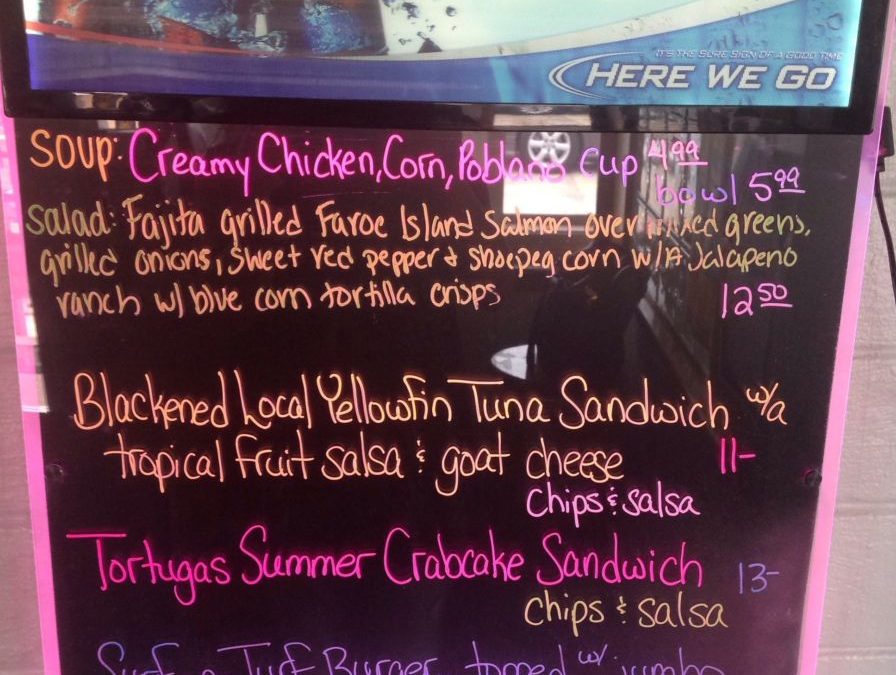 IT'S THE SURE SIGN OF A GOOD TIME
HERE WE GO
Soup: Creamy Chicken, Corn, Poblano Cup 4.99
bowl 5 99
Salad: Fajita grilled Faroe Island Salmon over mixed greens,
grilled onions, sweet red pepper & shoepeg corn w/A Jalapeno
ranch w/ blue corn tortilla crisps 12 50
Blackened Local Yellowfin Tuna Sandwich w/a
tropical Fruit salsa & goat cheese 11-
Chips & salsa
Tortugas Summer Crabcake Sandwich 13-
Chips & salsa
Surf n Turf Burger topped w/ jumbo